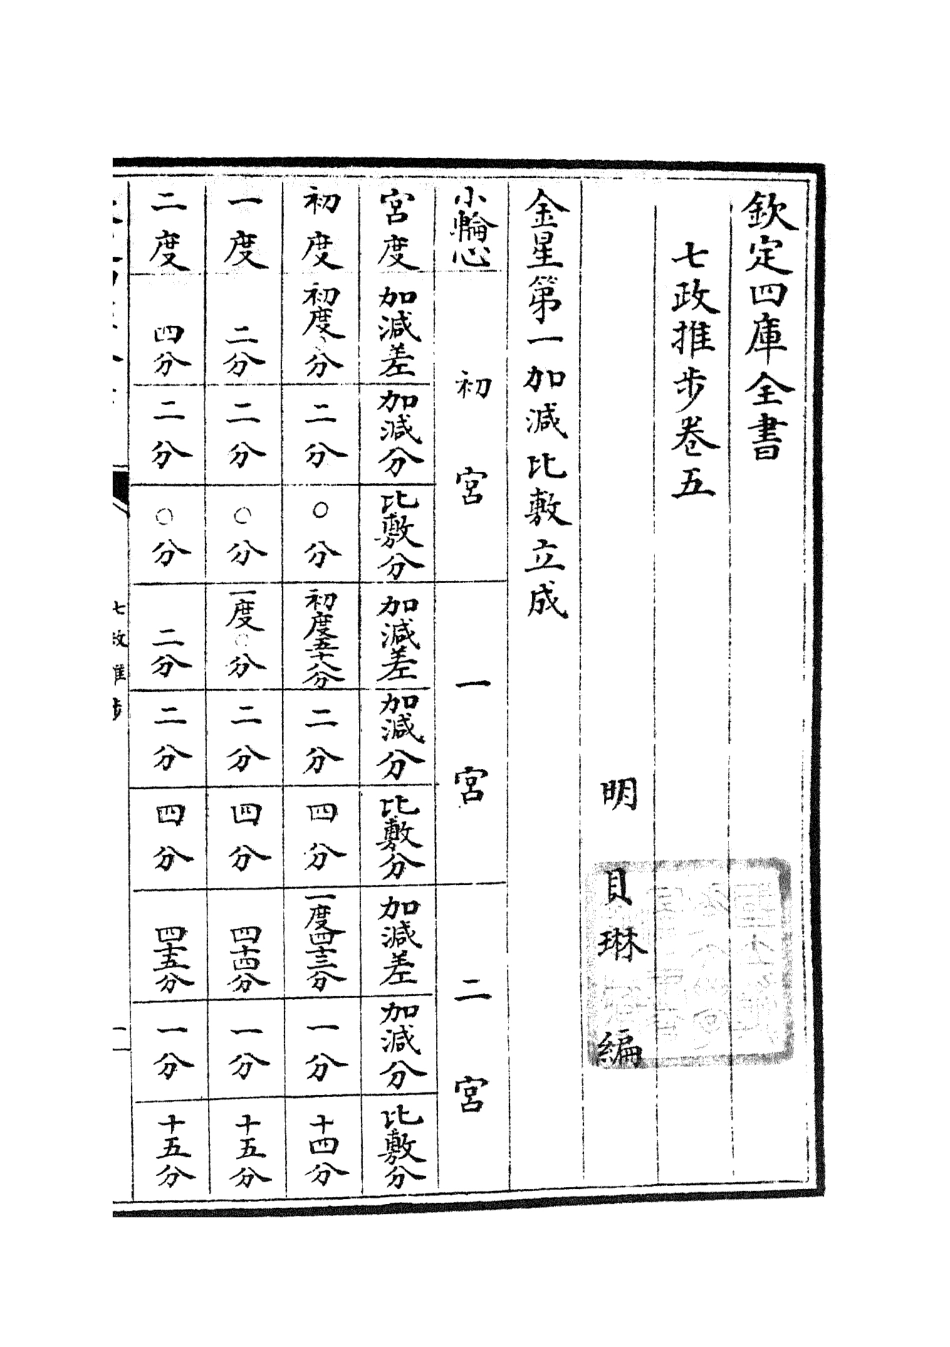 欽定四庫全書
七政推步卷五
明 貝琳 編
金星第一加減比敷立成
小輪心 初宮 一宮 二宮
宮度 加減差 加減分 比敷分 加減差 加減分 比敷分 加減差 加減分 比敷分
初度 初度〇分 二分 〇分 初度五十八分 二分 四分 一度四十三分 一分 十四分
一度 二分 二分 〇分 一度〇分 二分 四分 四十四分 一分 十五分
二度 四分 二分 〇分 二分 二分 四分 四十五分 一分 十五分
七政推步